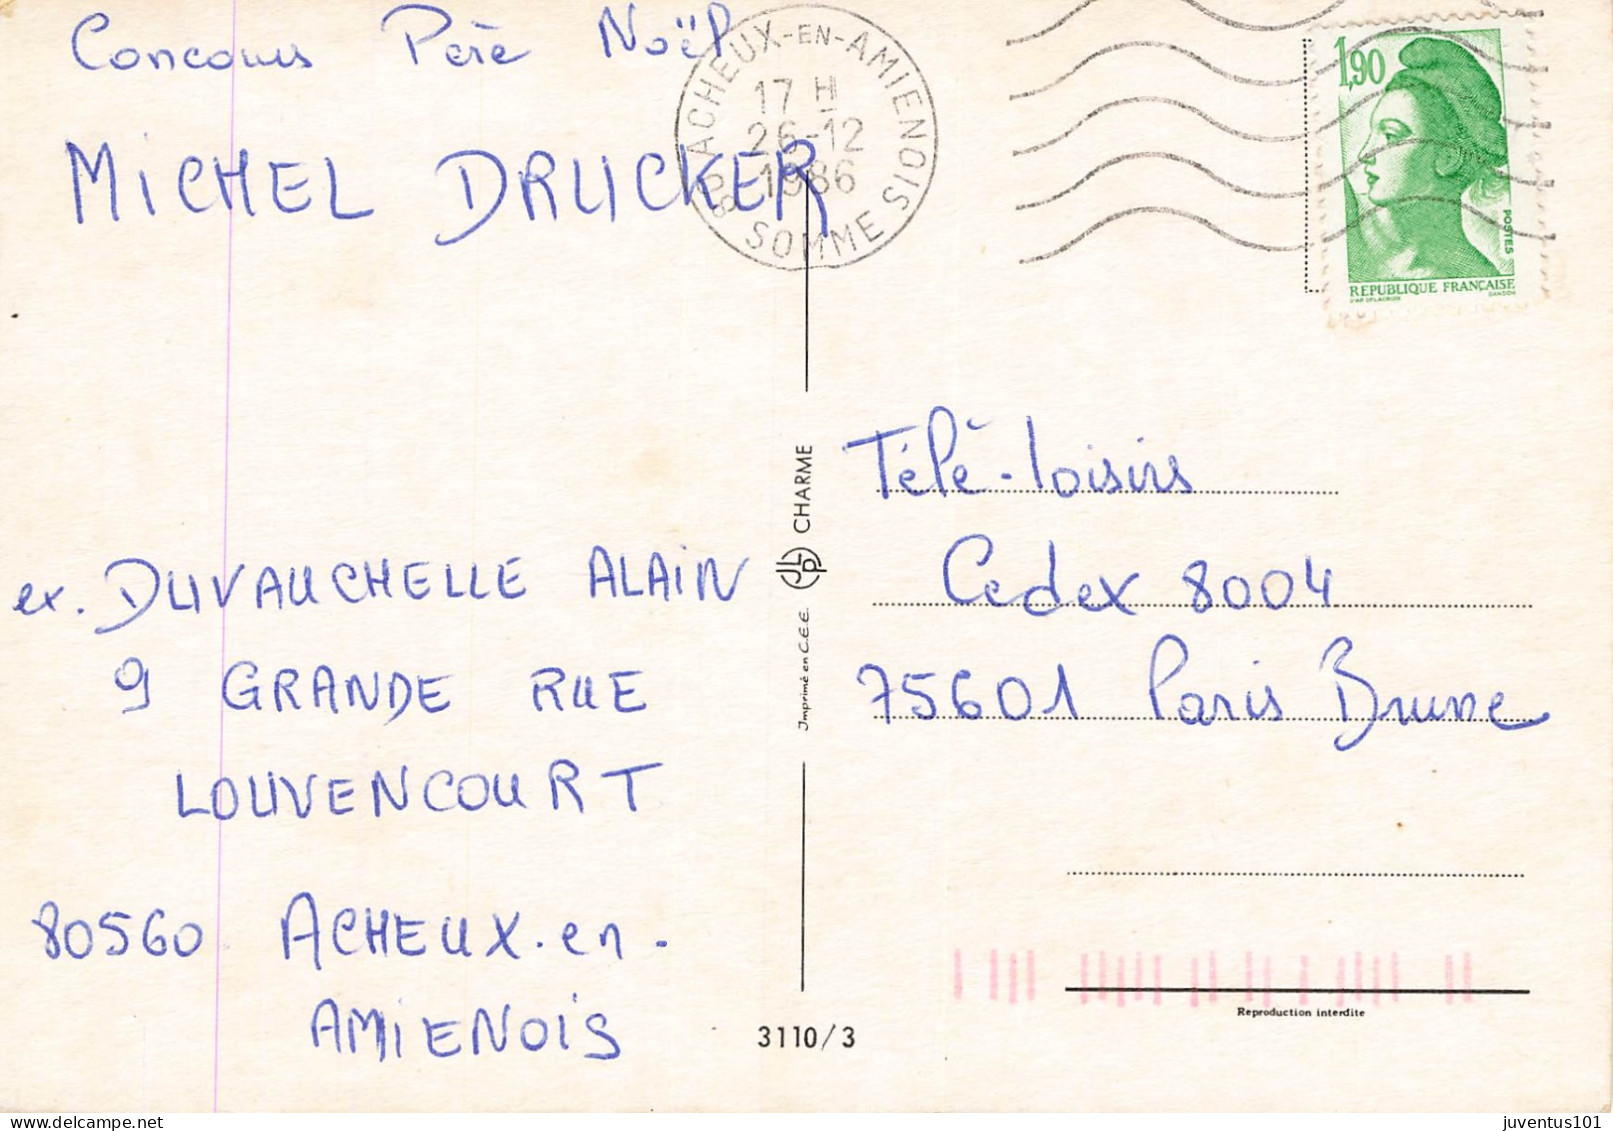 Concours Père Noël
MICHEL DRUCKER
80 ACHEUX-EN-AMIENOIS
17 H
26-12
1986
SOMME
1,90
POSTES
REPUBLIQUE FRANÇAISE
D'AP. DELACROIX
GANDON
Télé-loisirs
Cedex 8004
75601 Paris Brune
ex. DUVAUCHELLE ALAIN
9 GRANDE RUE
LOUVENCOURT
80560 ACHEUX-en-
AMIENOIS
CHARME
JLP
Imprimé en C.E.E.
3110/3
Reproduction interdite
delcampe.net
juventus101